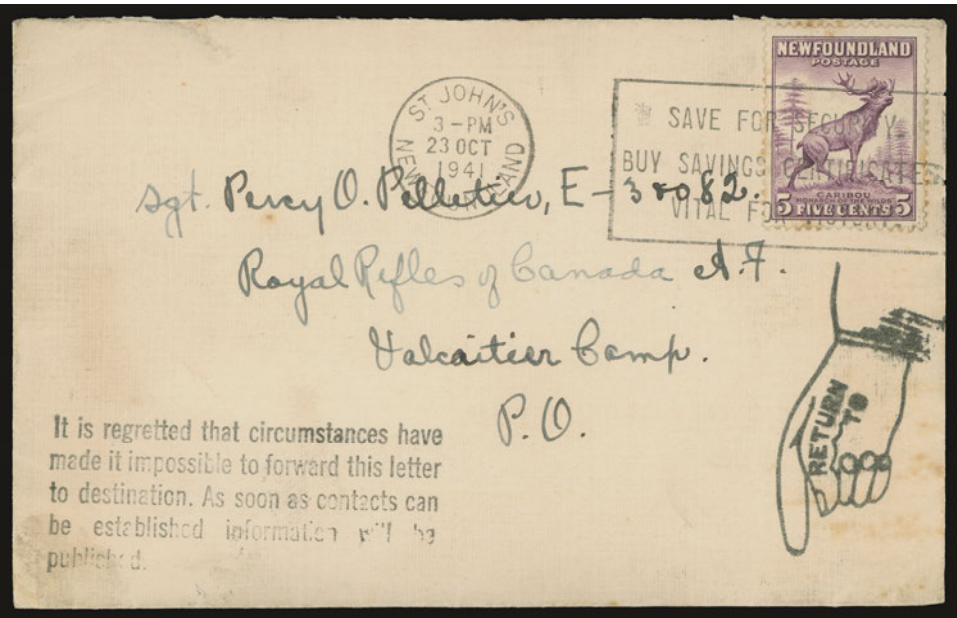 NEWFOUNDLAND
POSTAGE
CARIBOU
MONARCH OF THE WILDS
5 FIVE CENTS 5
ST JOHN'S
3-PM
23 OCT
1941
SAVE FOR SECURITY
BUY SAVINGS CERTIFICATES
VITAL FOR
Sgt. Percy O. Pelletier, E-38082.
Royal Rifles of Canada A.F.
Valcaitier Camp.
P.O.
RETURN
TO
It is regretted that circumstances have
made it impossible to forward this letter
to destination. As soon as contacts can
be established information will be
published.